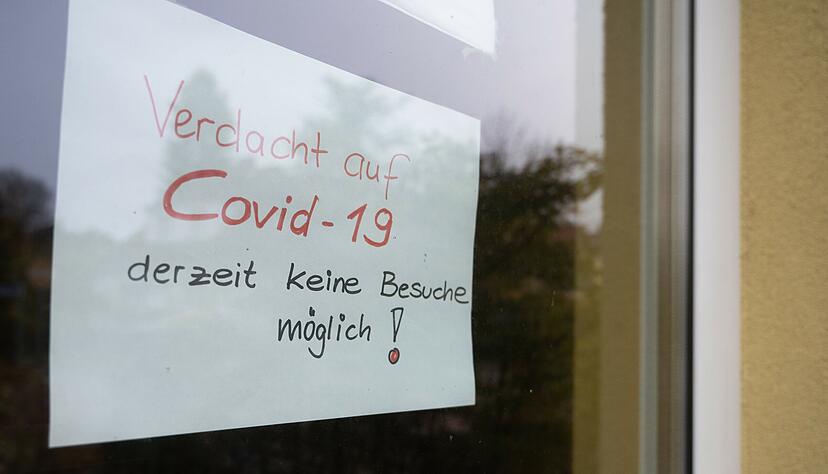 Verdacht auf
Covid-19
derzeit keine Besuche
möglich!